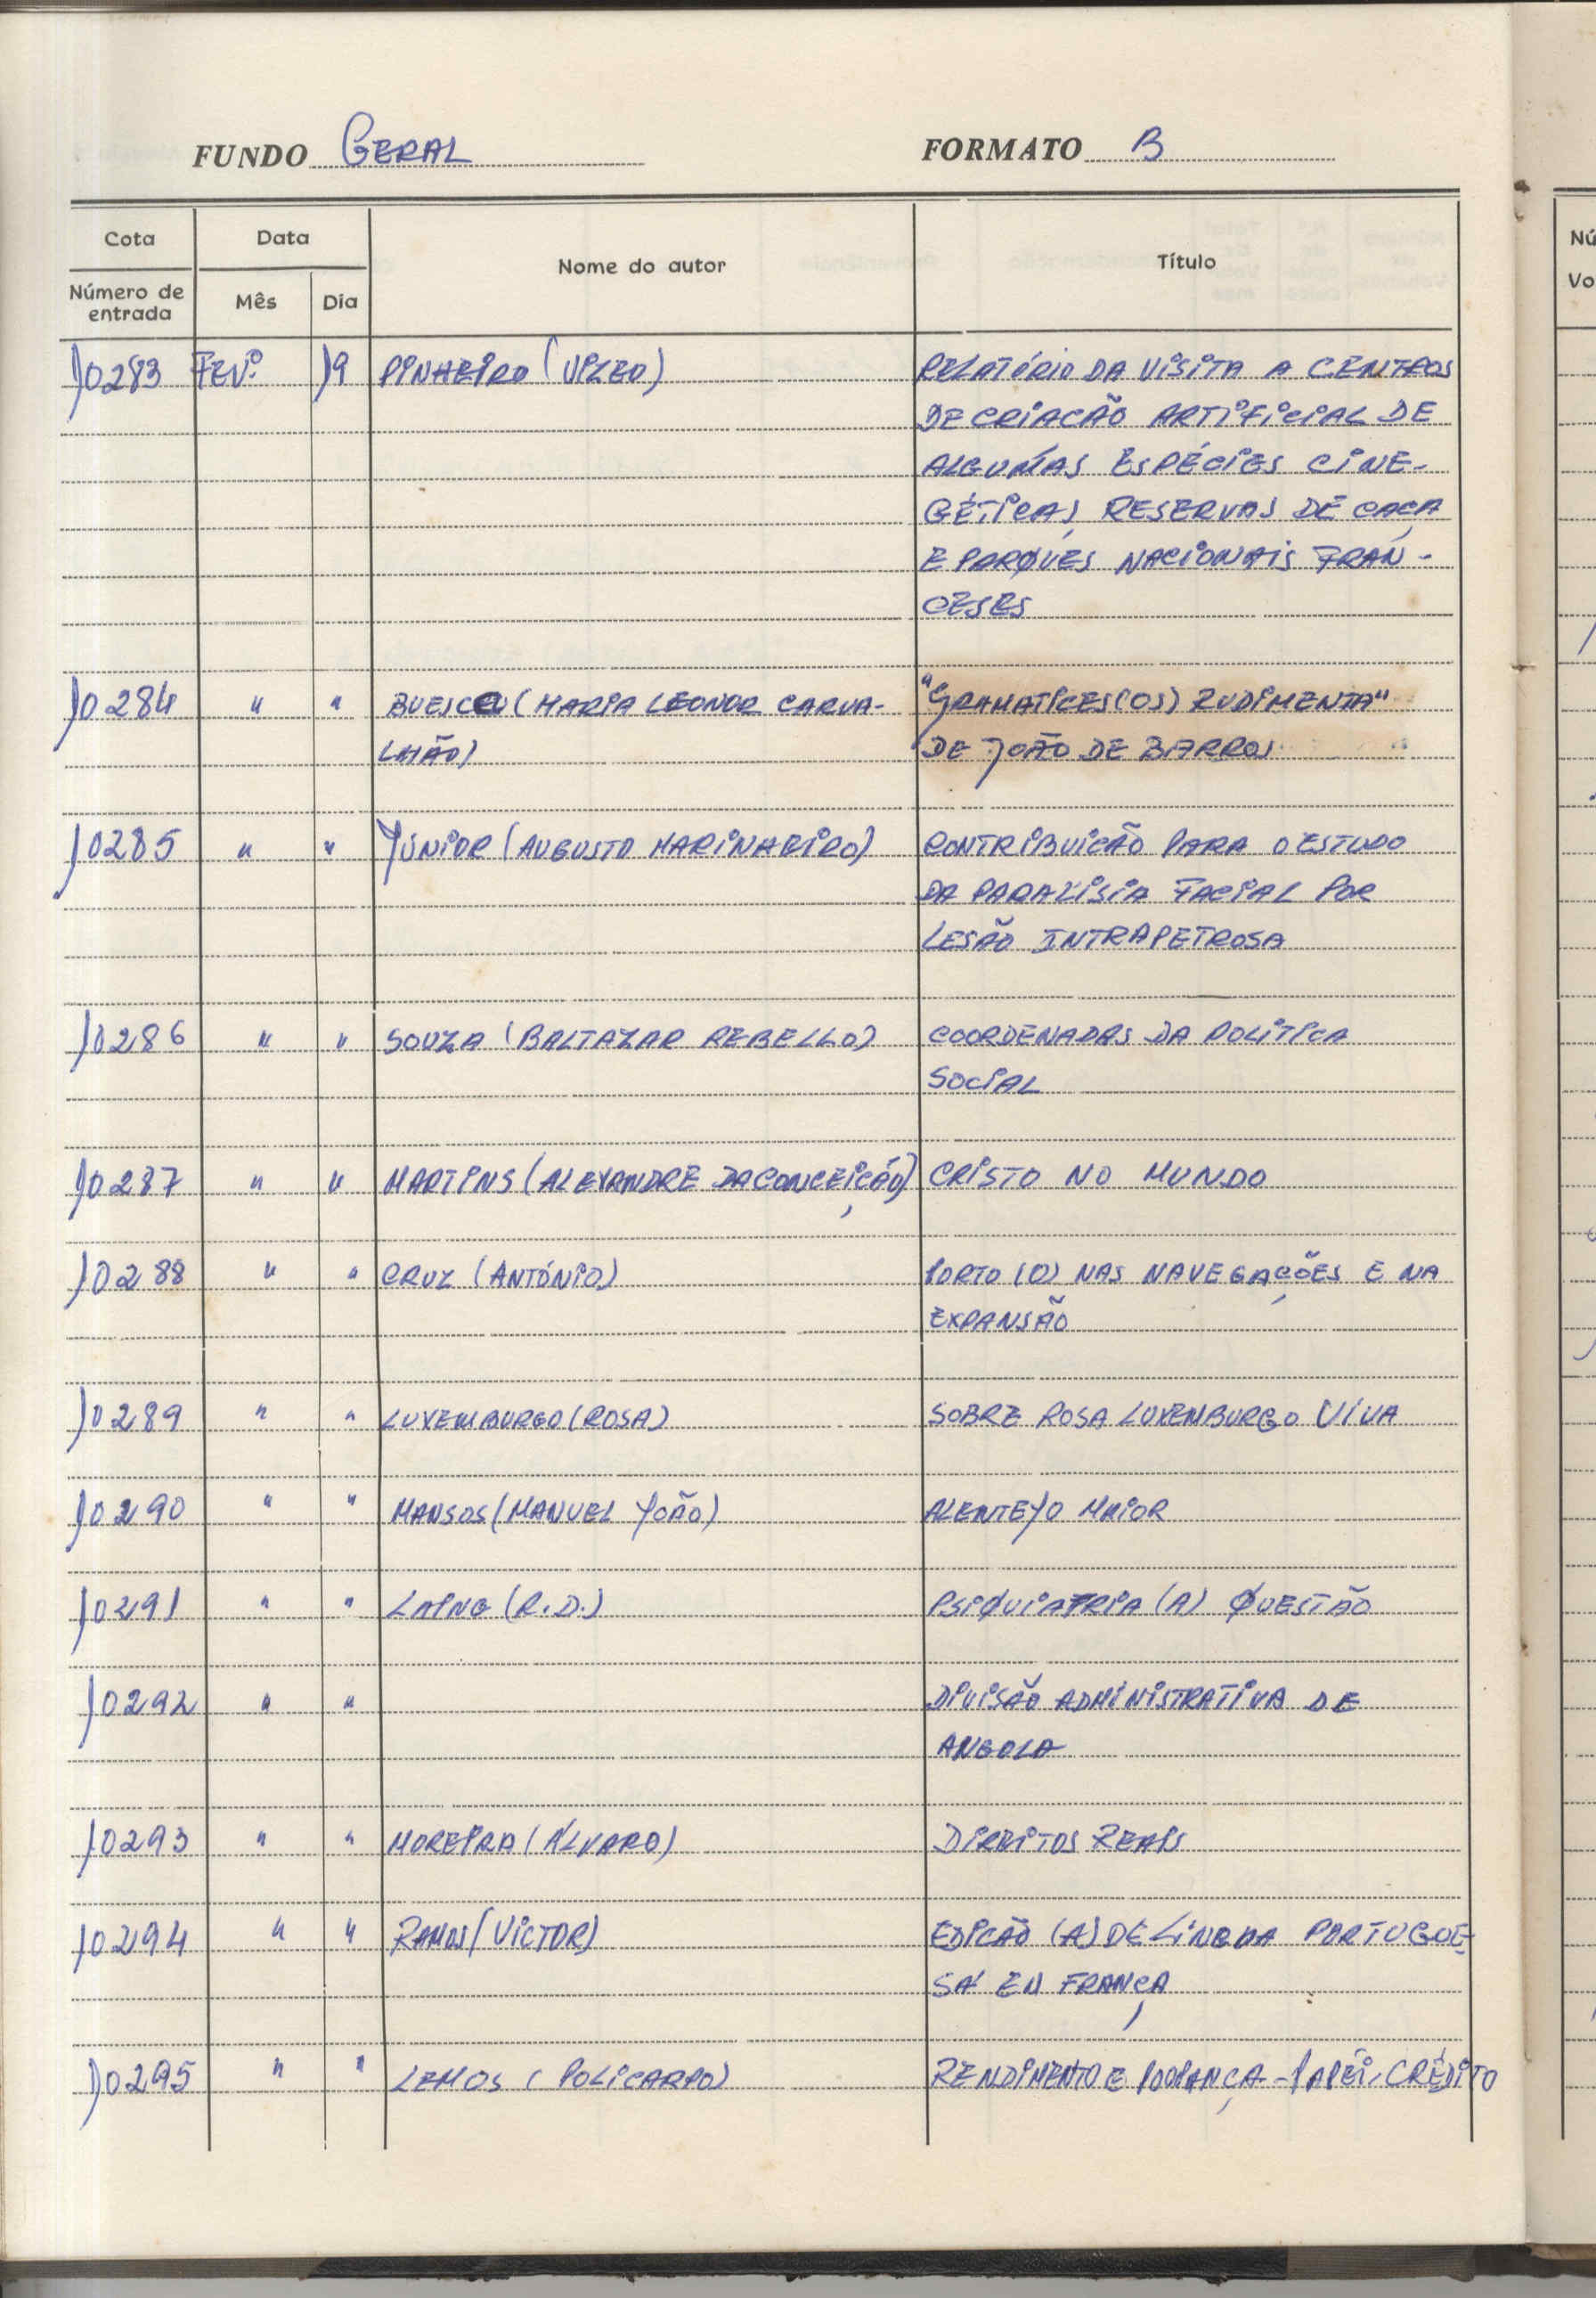 FUNDO GERAL FORMATO B
Cota Data Nome do autor Título
Número de entrada Mês Dia
10283 FEV.º 19 PINHEIRO (VILEO) RELATÓRIO DA VISITA A CENTROS
DE CRIACÃO ARTIFICIAL DE
ALGUMAS ESPÉCIES CINE-
GÉTICAS RESERVAS DE CAÇA
E PARQUES NACIONAIS FRAN-
CESES
10284 " " BUESCU (MARIA LEONOR CARVA- "GRAMATICES(OS) RUDIMENTA"
LHÃO) DE JOÃO DE BARROS
10285 " " JÚNIOR (AUGUSTO MARINHEIRO) CONTRIBUICÃO PARA O ESTUDO
DA PARALISIA FACIAL POR
LESÃO INTRAPETROSA
10286 " " SOUZA (BALTAZAR REBELLO) COORDENADAS DA POLITICA
SOCIAL
10287 " " MARTINS (ALEXANDRE DA CONCEIÇÃO) CRISTO NO MUNDO
10288 " " CRUZ (ANTÓNIO) PORTO (O) NAS NAVEGAÇÕES E NA
EXPANSÃO
10289 " " LUXEMBURGO (ROSA) SOBRE ROSA LUXEMBURGO VIVA
10290 " " MANSOS (MANUEL JOÃO) ALENTEJO MAIOR
10291 " " LAING (R.D.) PSIQUIATRIA (A) QUESTÃO
10292 " " DIVISÃO ADMINISTRATIVA DE
ANGOLA
10293 " " MOREIRA (ÁLVARO) DIREITOS REAIS
10294 " " RAMOS (VICTOR) EDICÃO (A) DE LÍNGUA PORTUGUE-
SA EM FRANÇA
10295 " " LEMOS (POLICARPO) RENDIMENTO E POUPANÇA - PAPÉIS, CRÉDITO
Nú
Vo